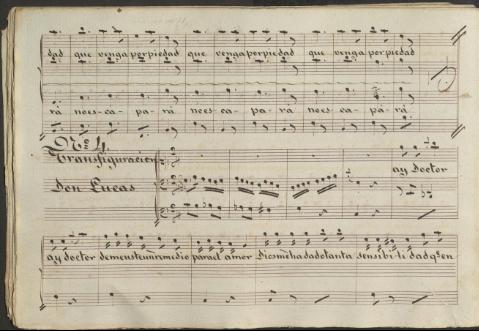 dad que venga por piedad que venga por piedad que venga por piedad
rá no es-ca-pa-rá no es-ca-pa-rá no es-ca-pa-rá
Nº 4
Transfiguracion
ay Doctor
Don Lucas
ay doctor demeusteunrremedio parael amor Diosmehadadotanta sensibi-li-dad qº en